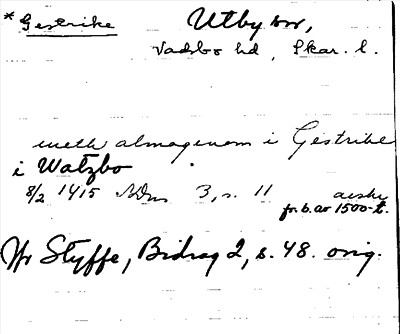 * Gestrike
Utby sn,
Vadsbo hd, Skar. l.
meth almogenom i Gestrike
i Watzbo
8/2 1415 3, s. 11 avskr
fr. b. av 1500-t.
Nr Styffe, Bidrag 2, s. 48. orig.